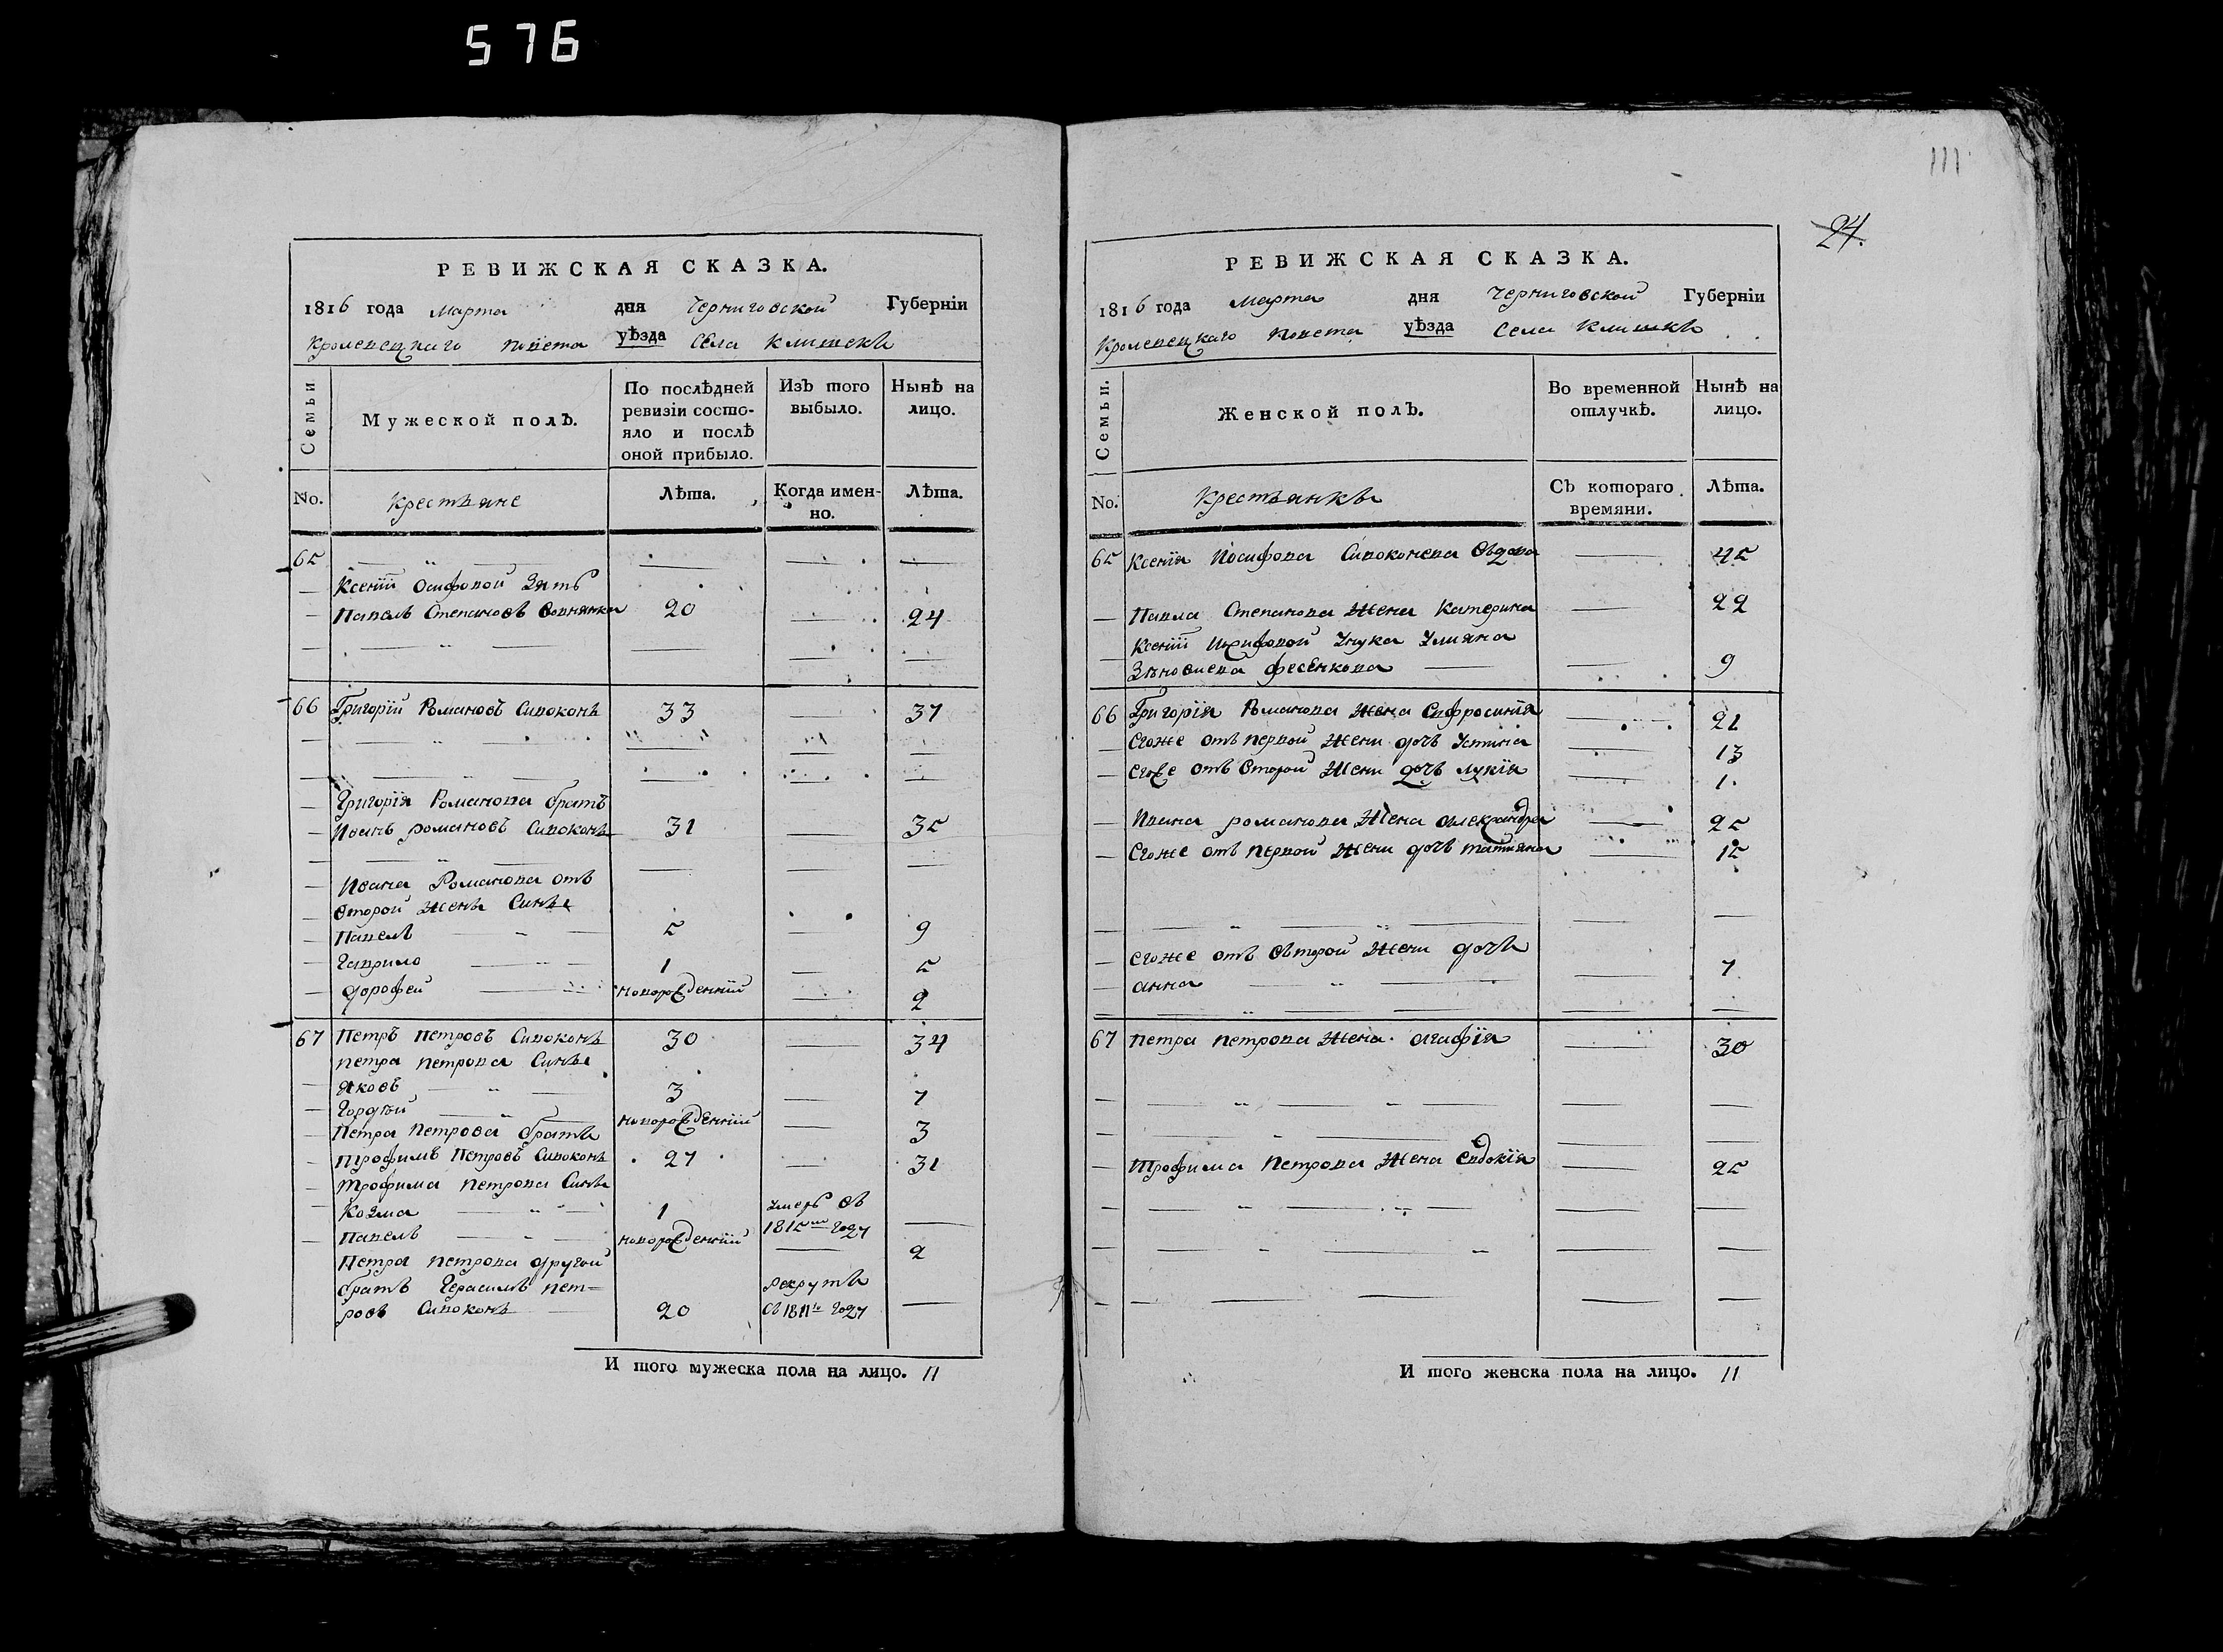 576
111
24.
РЕВИЖСКАЯ СКАЗКА.
1816 года Марта дня Черниговской Губерніи
Кролевецкаго повета уѣзда Села Клишекъ
Семьи
Мужеской полъ.
По послѣдней ревизіи состояло и послѣ оной прибыло.
Изъ того выбыло.
Нынѣ на лицо.
No.
Крестьяне
Лѣта.
Когда именно.
Лѣта.
65
Ксеніи Осифовой Зять
Павелъ Степановъ 20 24
66 Григорій Романовъ Сивоконь 33 37
Григорія Романова братъ
Иванъ Романовъ Сивоконь 31 35
Ивана Романова отъ
второй жены Сыны
Павелъ 5 9
Гаврило 1 5
Дорофей новорожденній 2
67 Петръ Петровъ Сивоконь 30 34
Петра Петрова Сыны
Яковъ 3 7
Гордѣй новорожденній 3
Петра Петрова братъ
Трофимъ Петровъ Сивоконь 27 31
Трофима Петрова Сыны
Козма 1 умеръ въ 1815м году
Павелъ новорожденній 2
Петра Петрова другой
братъ Герасимъ Пет-
ровъ Сивоконь 20 рекрутъ въ 1811м году
И того мужеска пола на лицо. 11
РЕВИЖСКАЯ СКАЗКА.
1816 года Марта дня Черниговской Губерніи
Кролевецкаго Повета уѣзда Села Клишкъ
Семьи.
Женской полъ.
Во временной отлучкѣ.
Нынѣ на лицо.
No.
Крестьянкы
Съ котораго времяни.
Лѣта.
65 Ксенія Иосифова Сивоконева вдова 45
Павла Степанова жена Катерина 22
Ксеніи Иосифовой Унука Улияна
Зѣновиева Фесенкова 9
66 Григорія Романова жена Евфросинія 21
Егоже отъ первой жени дочь Устина 13
Егоже отъ второй жени дочъ Лукія 1.
Ивана Романова жена Александра 25
Егоже отъ первой жени дочъ Татияна 15
Егоже отъ второй жени дочъ
Анна 7
67 Петра Петрова жена Агафія 30
Трофима Петрова жена Евдокія 25
И того женска пола на лицо. 11